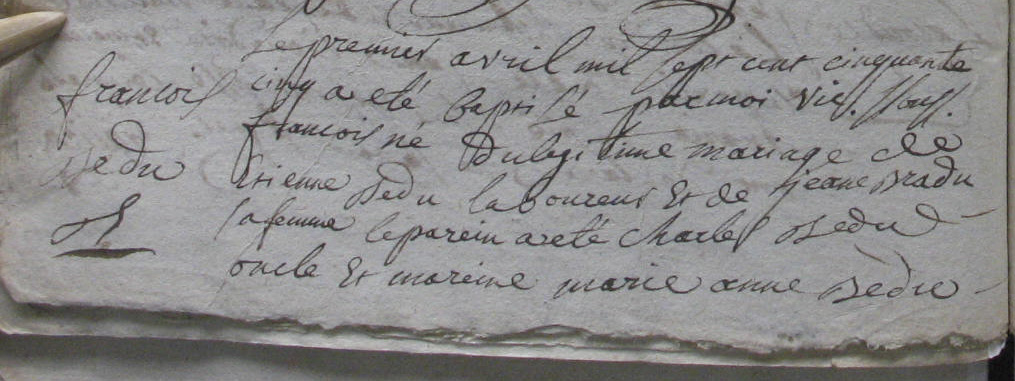 Le premier avril mil sept cent cinquante
francois cinq a eté baptisé par moi vic. souss.
francois né du legitime mariage de
Bedu Etienne Bedu laboureur Et de jeane Bradu
sa femme le parein a eté charles Bedu
oncle Et mareine marie anne Bedu